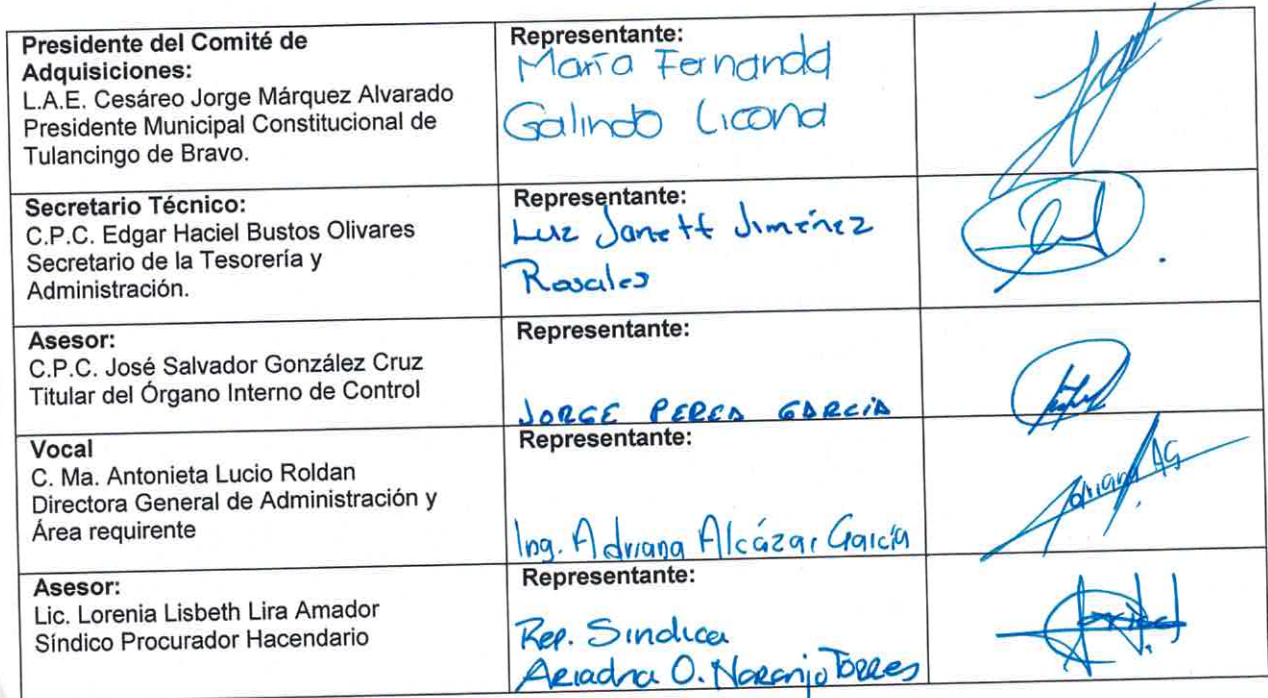 Presidente del Comité de
Adquisiciones:
L.A.E. Cesáreo Jorge Márquez Alvarado
Presidente Municipal Constitucional de
Tulancingo de Bravo.
Representante:
María Fernanda
Galindo Licona
Secretario Técnico:
C.P.C. Edgar Haciel Bustos Olivares
Secretario de la Tesorería y
Administración.
Representante:
Luz Janett Jiménez
Rosales
Asesor:
C.P.C. José Salvador González Cruz
Titular del Órgano Interno de Control
Representante:
JORGE PEREA GARCÍA
Vocal
C. Ma. Antonieta Lucio Roldan
Directora General de Administración y
Área requirente
Representante:
Ing. Adriana Alcázar García
Adriana AG
Asesor:
Lic. Lorenia Lisbeth Lira Amador
Síndico Procurador Hacendario
Representante:
Rep. Sindica
Ariadna O. Naranjo Torres